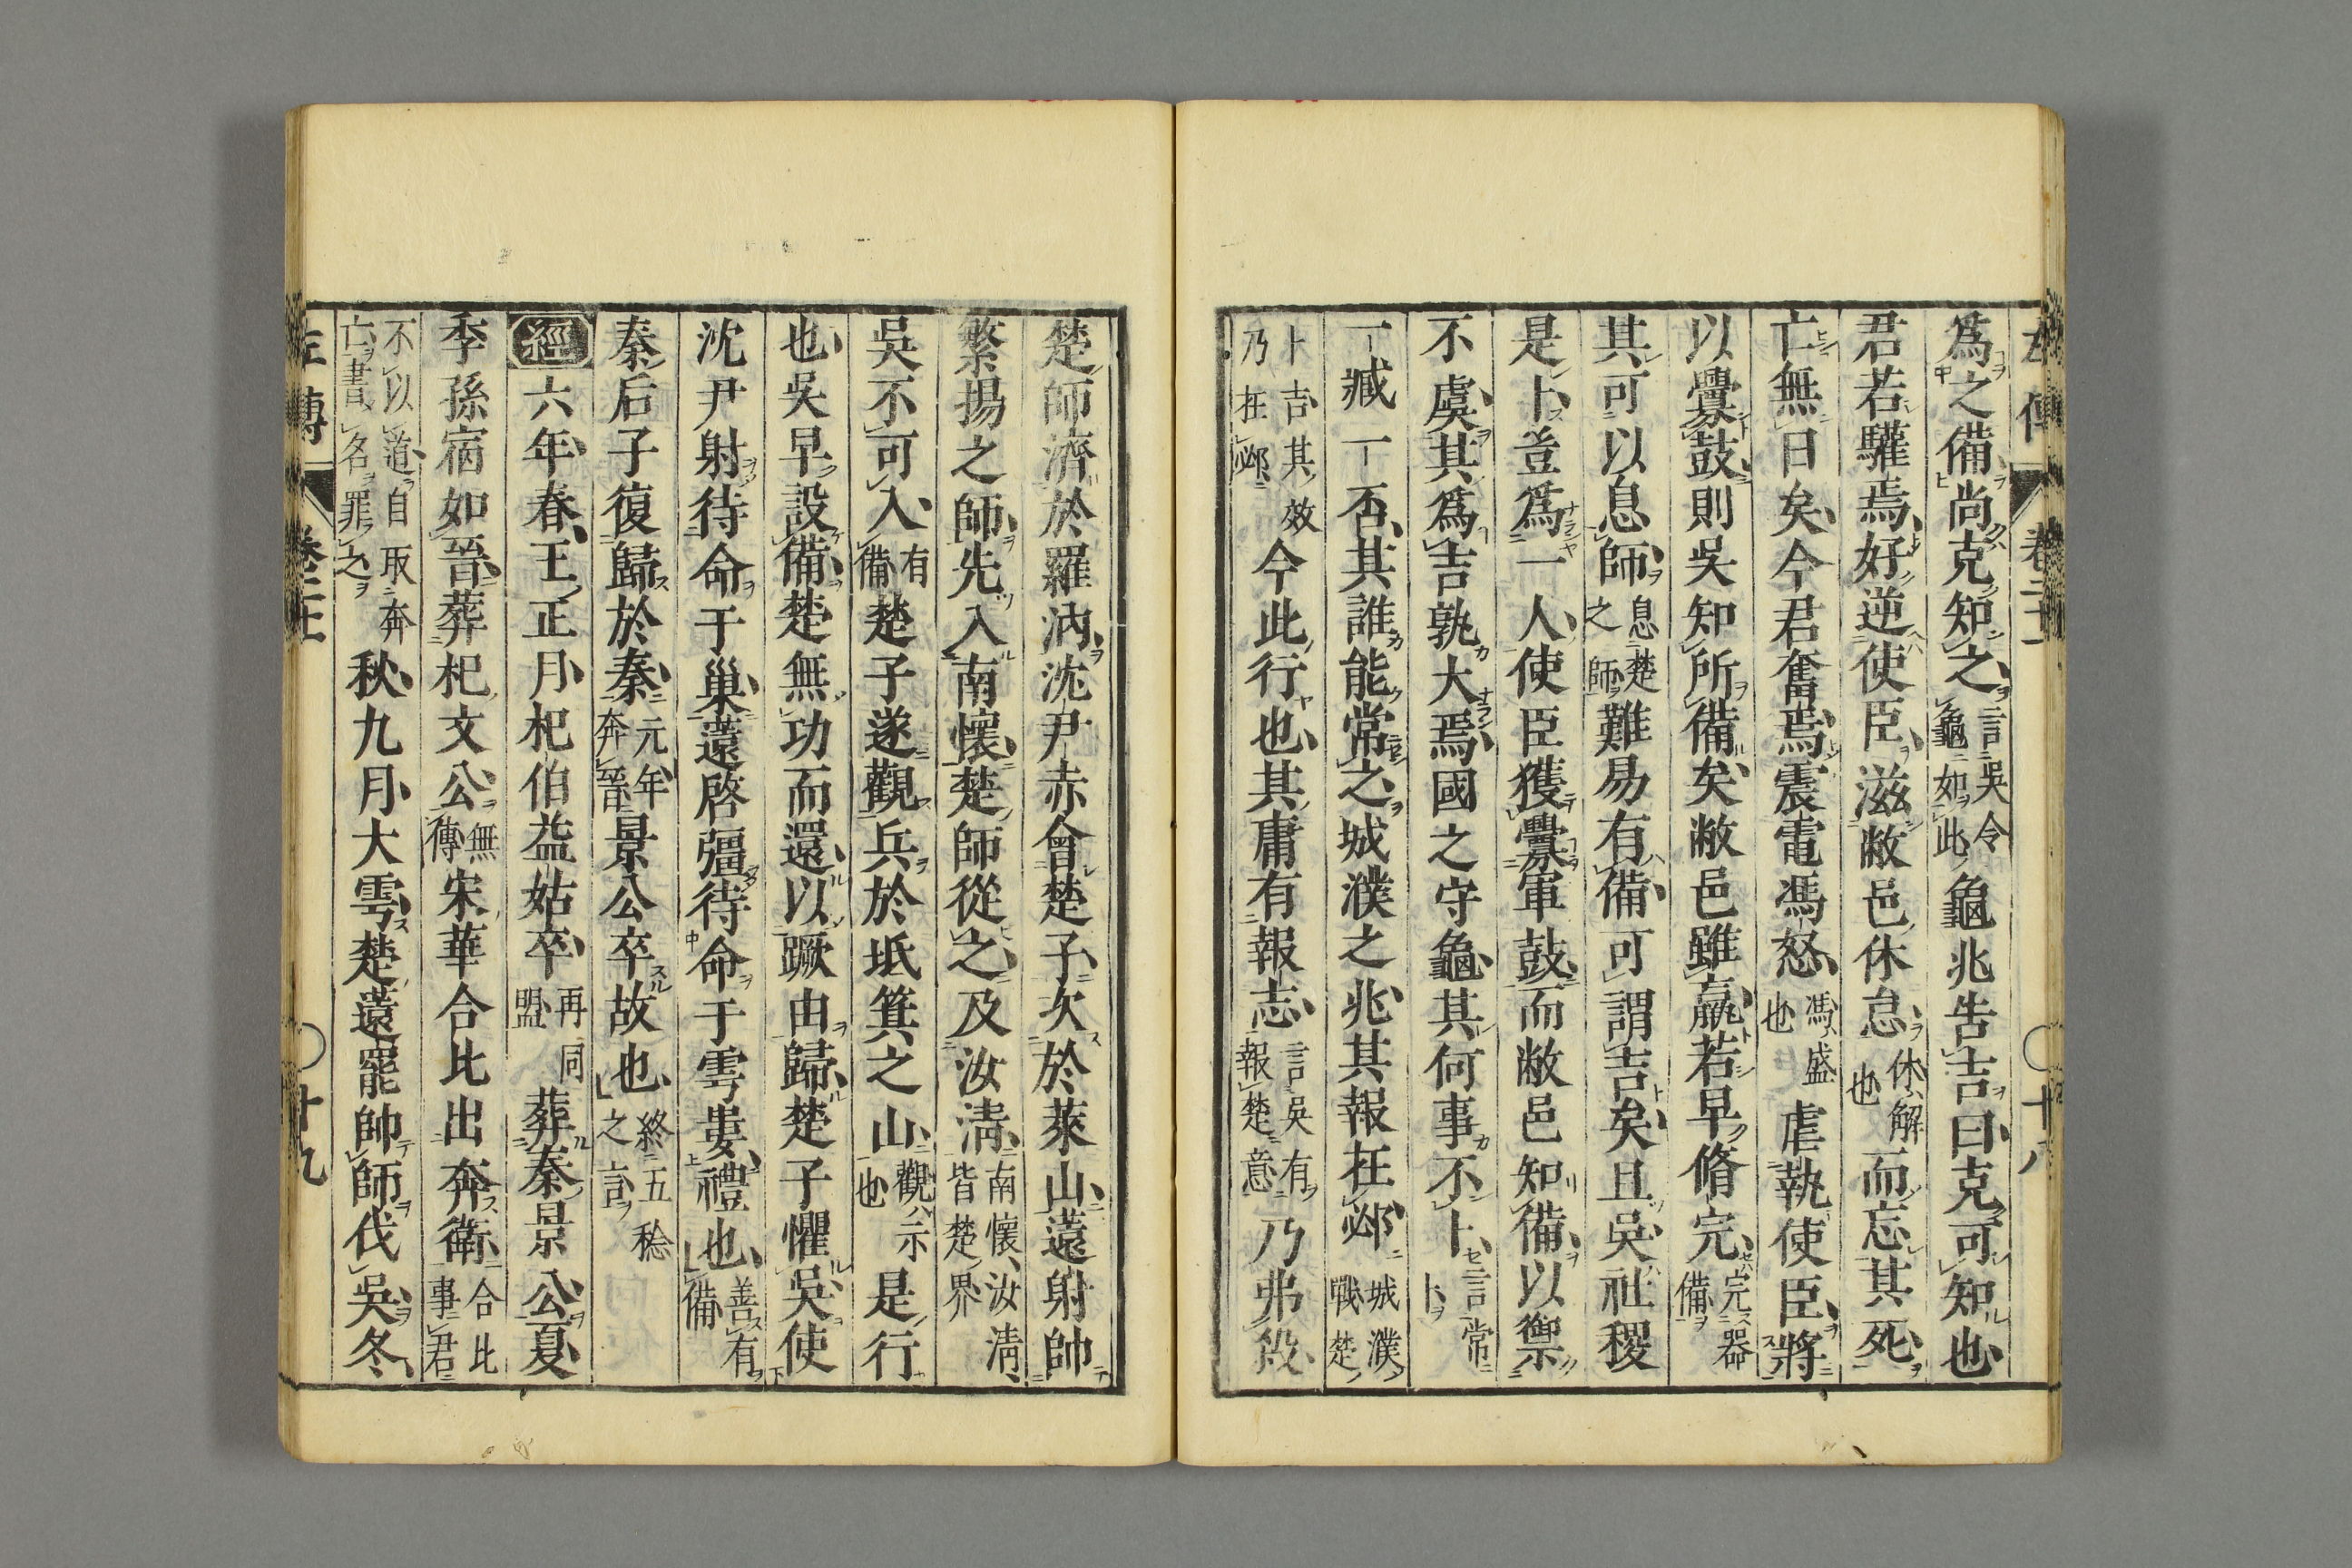 左傳　卷二十一　〇十八
爲之備尚克知之言吳令龜如此龜兆告吉曰克可知也
君若驩焉好逆使臣滋敝邑休怠休解也而忘其死
亡無日矣今君奮焉震電馮怒馮盛也虐執使臣將
以釁鼓則吳知所備矣敝邑雖羸若早脩完完器備
其可以息師息楚之師難易有備可謂吉矣且吳社稷
是卜豈爲一人使臣獲釁軍鼓而敝邑知備以禦
不虞其爲吉孰大焉國之守龜其何事不卜言常卜
一臧一否其誰能常之城濮之兆其報在邲城濮戰楚
卜吉其效乃在邲今此行也其庸有報志言吳有報楚意乃弗殺
楚師濟於羅汭沈尹赤會楚子次於萊山薳射帥
繁揚之師先入南懷楚師從之及汝清南懷汝清皆楚界
吳不可入有備楚子遂觀兵於坻箕之山觀示也是行
也吳早設備楚無功而還以蹶由歸楚子懼吳使
沈尹射待命于巢薳啓彊待命于雩婁禮也善有備
秦后子復歸於秦元年奔晉景公卒故也終五稔之言
經六年春王正月杞伯益姑卒再同盟葬秦景公夏
季孫宿如晉葬杞文公無傳宋華合比出奔衛合比事君
不以道自取奔亡書名罪之秋九月大雩楚薳罷帥師伐吳冬
左傳　卷二十一　〇十九